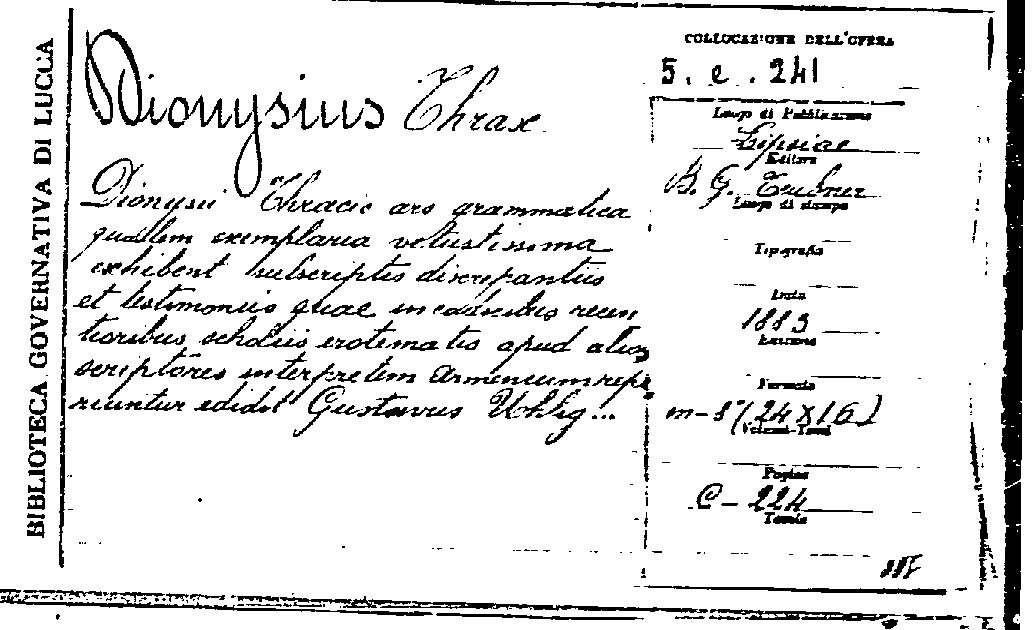 BIBLIOTECA GOVERNATIVA DI LUCCA
Dionysius Thrax
Dionysii Thracis ars grammatica
qualem exemplaria vetustissima
exhibent subscriptis discrepantiis
et testimoniis quae in codicibus recen
tioribus scholiis erotematis apud alios
scriptores interpretem Armenium repe
riuntur edidit Gustavus Uhlig...
COLLOCAZIONE DELL'OPERA
5. e. 241
Luogo di Pubblicazione
Lipsiae
Editore
B. G. Teubner
Luogo di stampa
Tipografia
Data
1883
Edizione
Formato
in-8° (24x16)
Volumi-Tomi
Pagine
C-224
Tavole